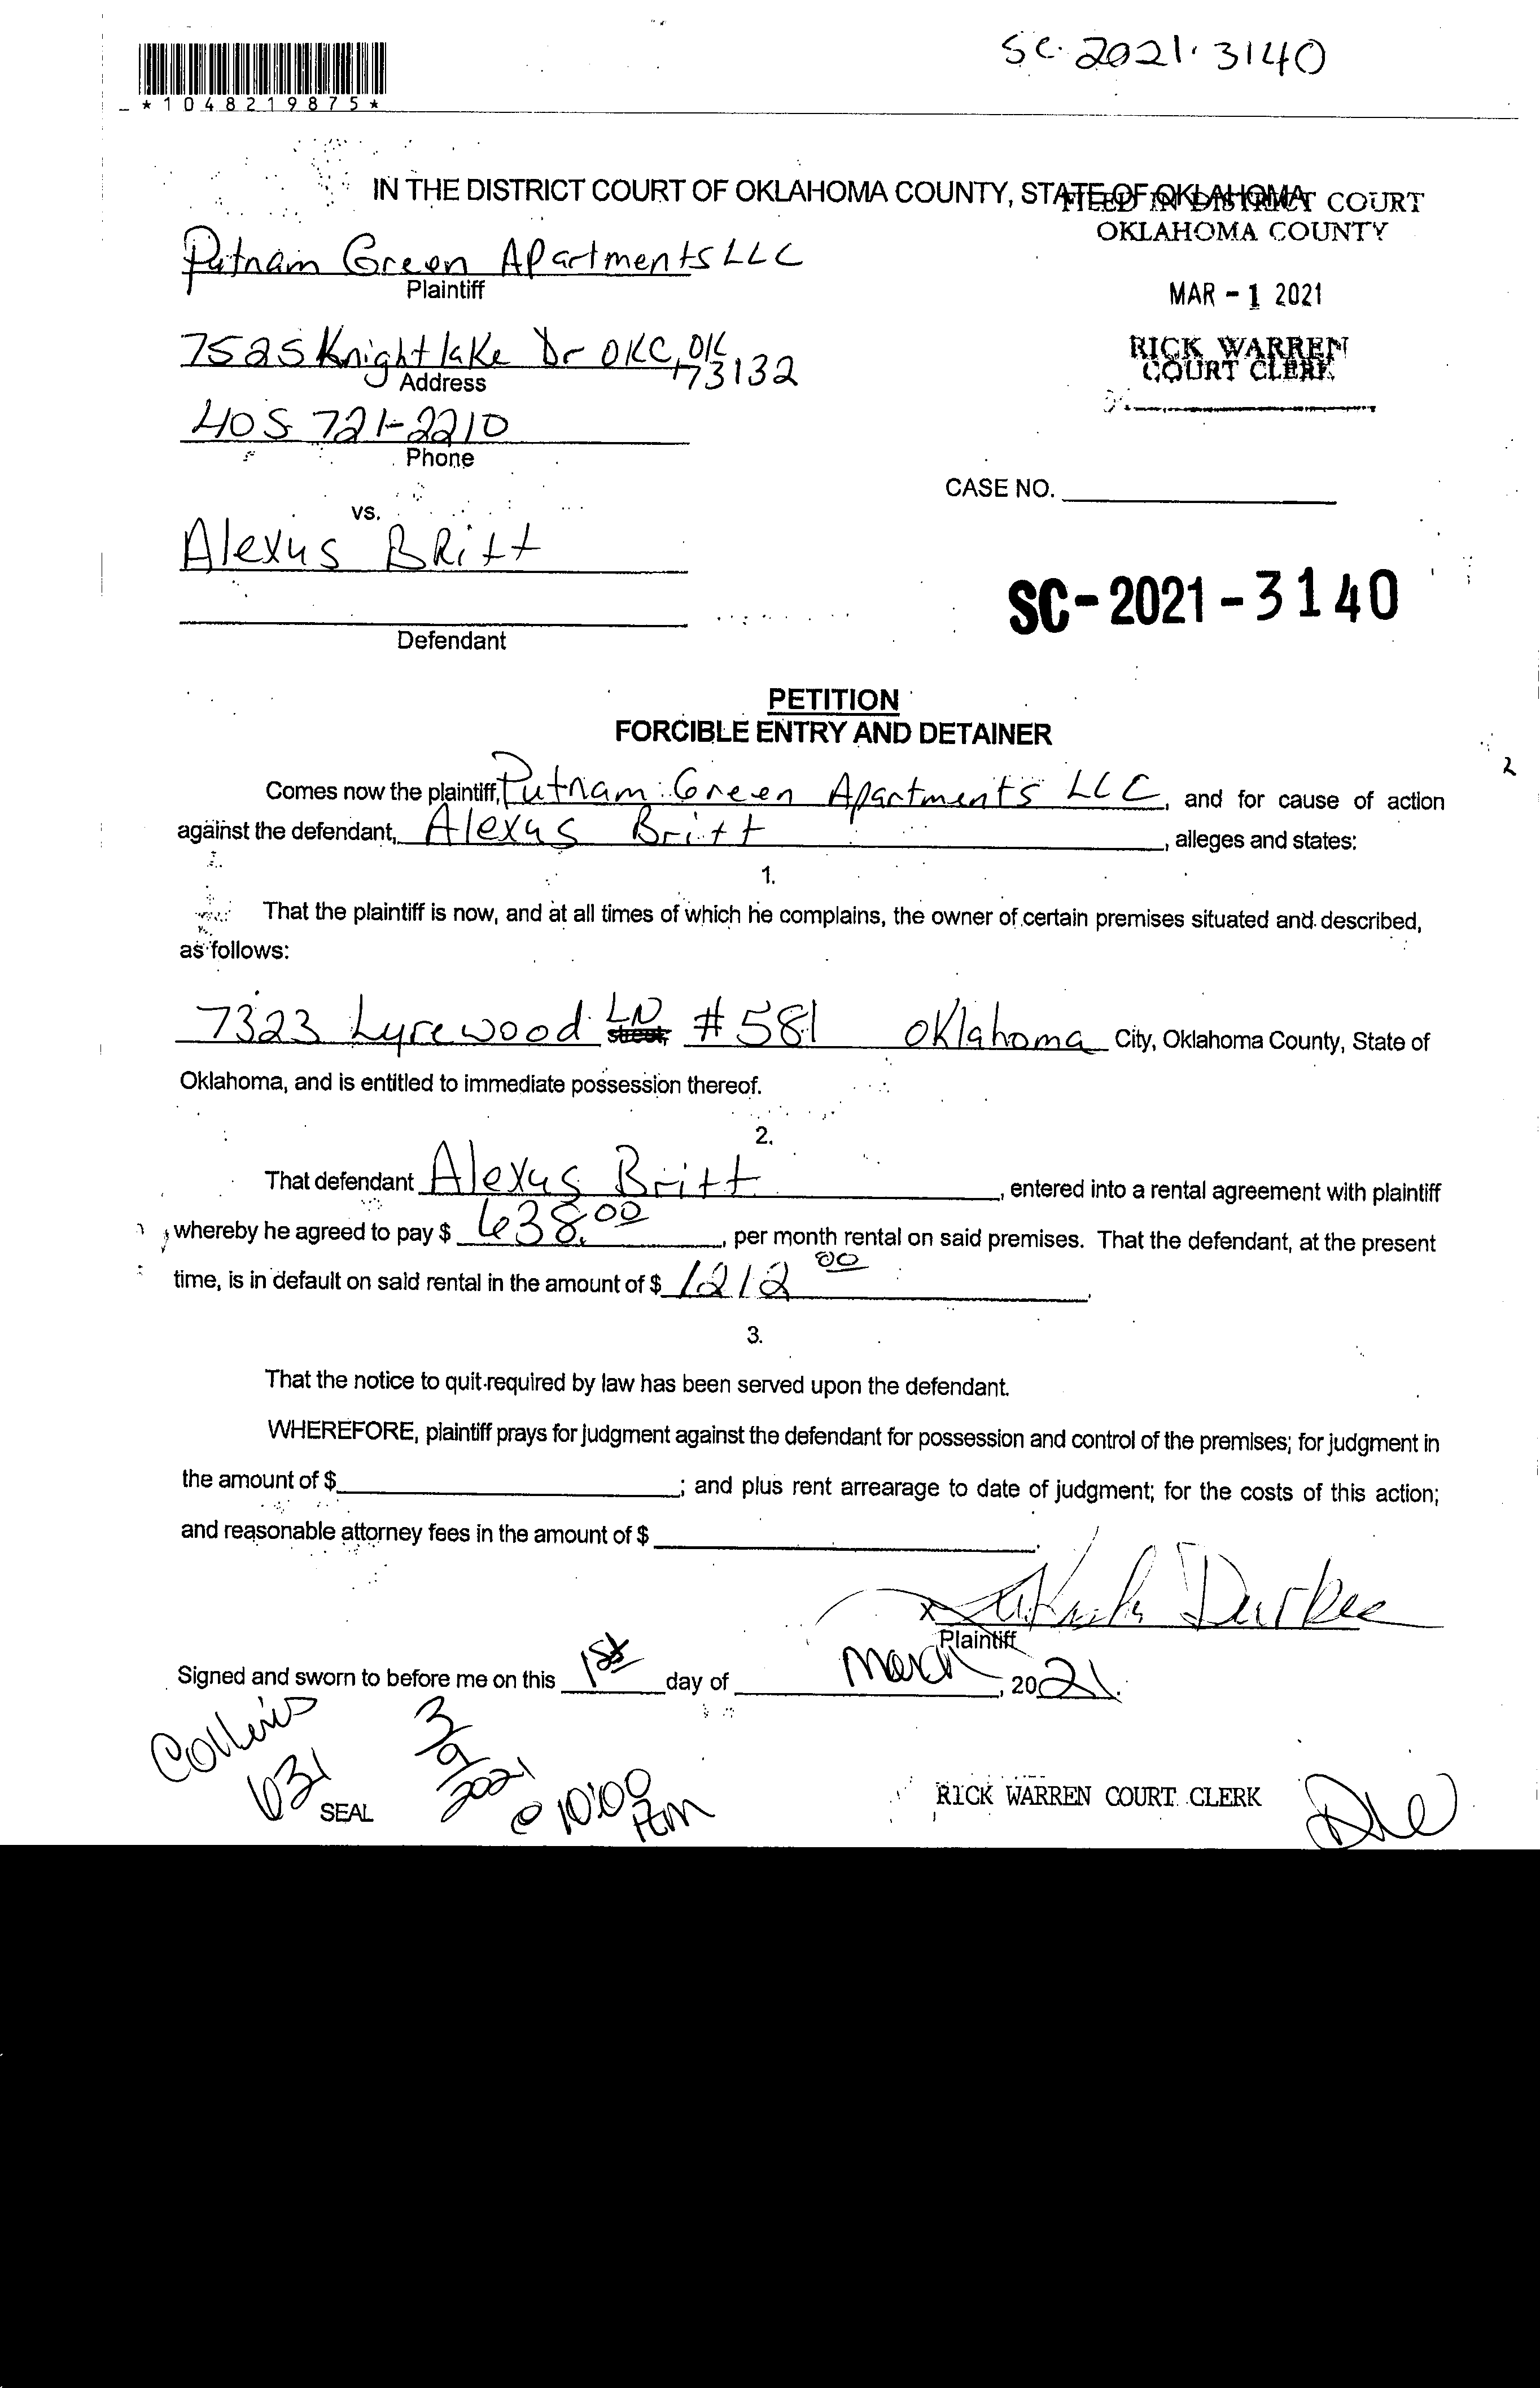 SC-2021-3140
*1048219875*
IN THE DISTRICT COURT OF OKLAHOMA COUNTY, STATE OF OKLAHOMA
FILED IN DISTRICT COURT
OKLAHOMA COUNTY
Putnam Green Apartments LLC
Plaintiff
MAR - 1 2021
7525 Knight lake Dr OKC, OK
73132
Address
RICK WARREN
COURT CLERK
405 721-2210
Phone
CASE NO.
vs.
Alexus BRitt
SC-2021-3140
Defendant
PETITION
FORCIBLE ENTRY AND DETAINER
Comes now the plaintiff, Putnam Green Apartments LLC, and for cause of action
against the defendant, Alexus Britt, alleges and states:
1.
That the plaintiff is now, and at all times of which he complains, the owner of certain premises situated and described,
as follows:
7323 Lyrewood LN #581 Oklahoma City, Oklahoma County, State of
Oklahoma, and is entitled to immediate possession thereof.
2.
That defendant Alexus Britt, entered into a rental agreement with plaintiff
whereby he agreed to pay $ 638.00, per month rental on said premises. That the defendant, at the present
time, is in default on said rental in the amount of $ 1212 00.
3.
That the notice to quit required by law has been served upon the defendant.
WHEREFORE, plaintiff prays for judgment against the defendant for possession and control of the premises; for judgment in
the amount of $; and plus rent arrearage to date of judgment; for the costs of this action;
and reasonable attorney fees in the amount of $.
X Durkee
Plaintiff
Signed and sworn to before me on this 1st day of March, 2021.
Collins
3/9/2021
631
SEAL
@ 10:00 Am
RICK WARREN COURT CLERK